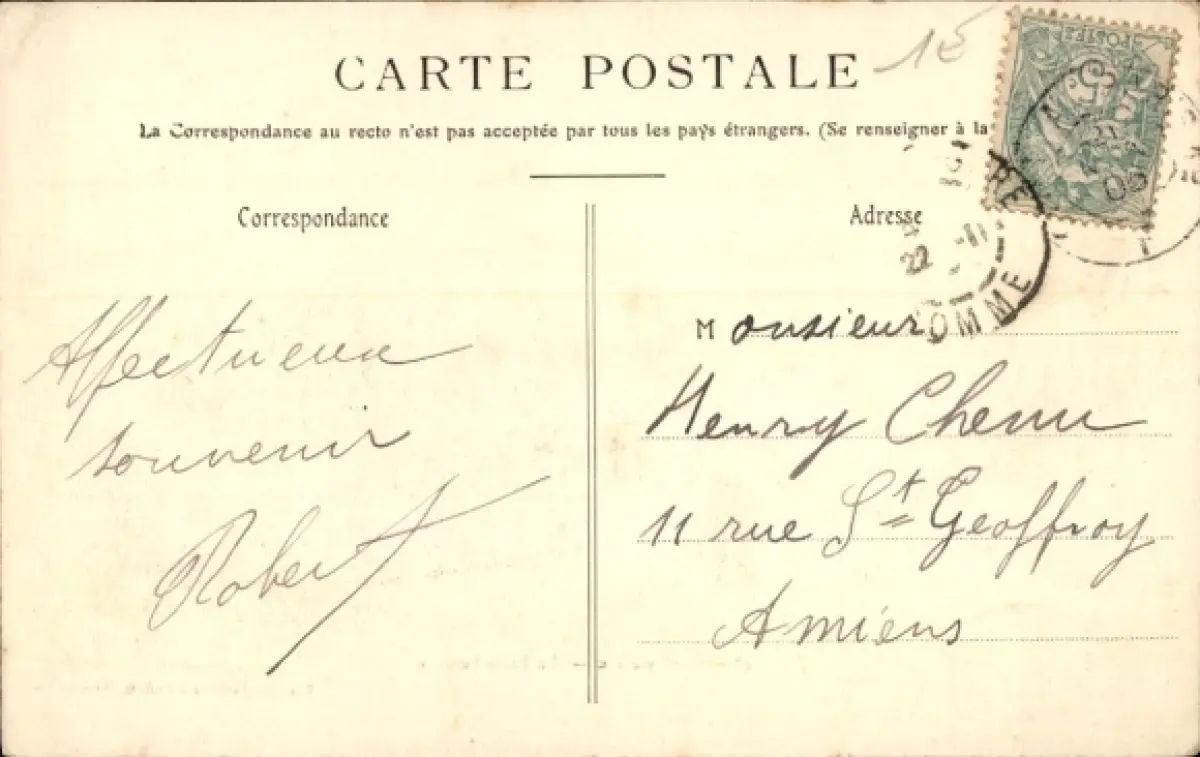 CARTE POSTALE
1€
La Correspondance au recto n'est pas acceptée par tous les pays étrangers. (Se renseigner à la
Correspondance
Adresse
POSTES
22 -11
OMME
05
Affectueux
souvenir
Robert
Monsieur
Henry Chenu
11 rue St Geoffroy
Amiens